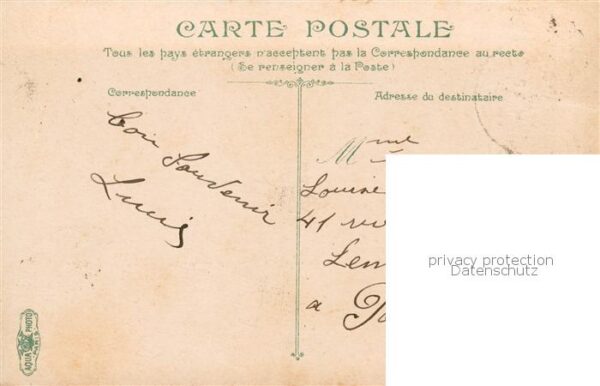 CARTE POSTALE
Tous les pays étrangers n'acceptent pas la Correspondance au recto
(Se renseigner à la Poste)
Correspondance
Adresse du destinataire
Bon Souvenir
Mme
Louise
41 rue
à
privacy protection
Datenschutz
AQUA PHOTO
PARIS